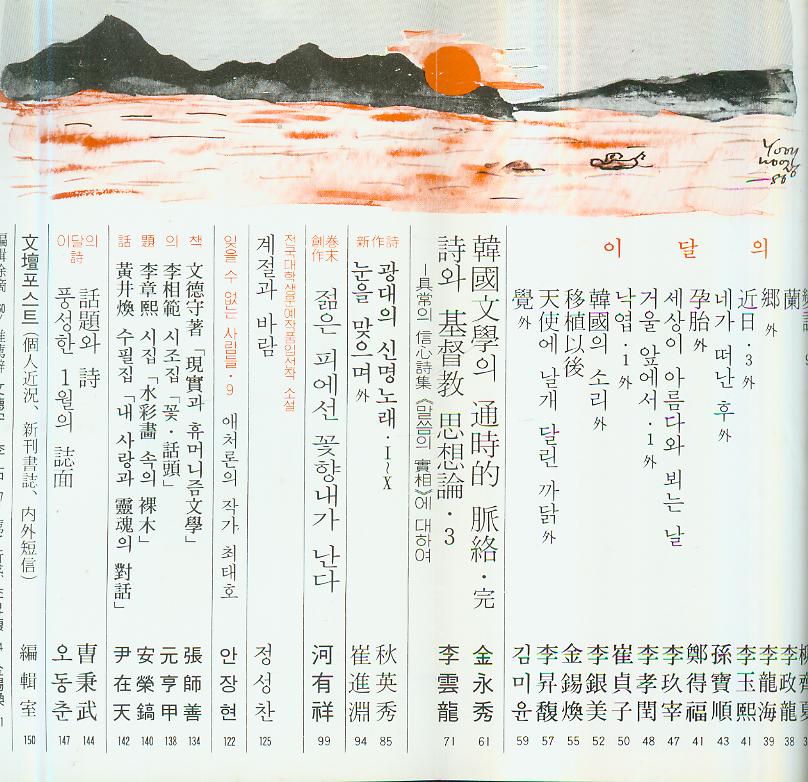 이 달 의
蘭 李政龍 38
鄕 外 李龍海 39
近日·3 外 李玉熙 41
네가 떠난 후 外 孫寶順 43
孕胎 外 鄭得福 41
세상이 아름다와 뵈는 날 李玖宰 47
거울 앞에서·1 外 李孝閏 48
낙엽·1 外 崔貞子 50
韓國의 소리 外 李銀美 52
移植以後 金錫煥 55
天使에 날개 달린 까닭 外 李昇馥 57
覺 外 김미윤 59
韓國文學의 通時的 脈絡·完 金永秀 61
詩와 基督敎 思想論·3 李雲龍 71
―具常의 信心詩集 《말씀의 實相》에 대하여
新作詩
광대의 신명노래·I~X 秋英秀 85
눈을 맞으며 外 崔進淵 94
卷末創作
젊은 피에선 꽃향내가 난다 河有祥 99
전국대학생문예작품입선작 소설
계절과 바람 정성찬 125
잊을 수 없는 사람들·9 애처론의 작가 최태호 안장현 122
책의 題話
文德守著 「現實과 휴머니즘文學」 張師善 134
李相範 시조집 「꽃·話頭」 元亨甲 138
李章熙 시집 「水彩畵 속의 裸木」 安榮鎬 140
黃井煥 수필집 「내 사랑과 靈魂의 對話」 尹在天 142
이달의 詩
話題와 詩 曺秉武 144
풍성한 1월의 誌面 오동춘 147
文壇포스트 (個人近況、新刊書誌、内外短信) 編輯室 150